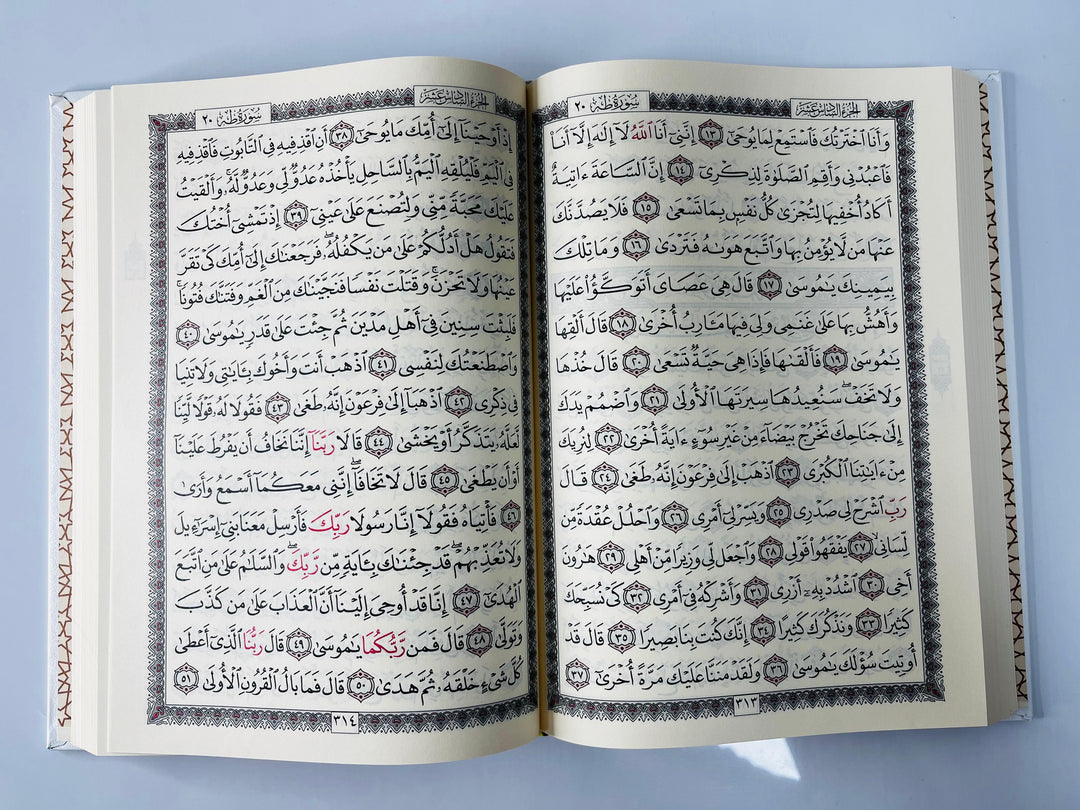 الجزء السادس عشر
سُورَةُ طه ٢٠
وَأَنَا ٱخْتَرْتُكَ فَٱسْتَمِعْ لِمَا يُوحَىٰٓ ١٣ إِنَّنِىٓ أَنَا ٱللَّهُ لَآ إِلَٰهَ إِلَّآ أَنَا۠
فَٱعْبُدْنِى وَأَقِمِ ٱلصَّلَوٰةَ لِذِكْرِىٓ ١٤ إِنَّ ٱلسَّاعَةَ ءَاتِيَةٌ
أَكَادُ أُخْفِيهَا لِتُجْزَىٰ كُلُّ نَفْسٍۭ بِمَا تَسْعَىٰ ١٥ فَلَا يَصُدَّنَّكَ
عَنْهَا مَن لَّا يُؤْمِنُ بِهَا وَٱتَّبَعَ هَوَىٰهُ فَتَرْدَىٰ ١٦ وَمَا تِلْكَ
بِيَمِينِكَ يَٰمُوسَىٰ ١٧ قَالَ هِىَ عَصَاىَ أَتَوَكَّؤُا۟ عَلَيْهَا
وَأَهُشُّ بِهَا عَلَىٰ غَنَمِى وَلِىَ فِيهَا مَـَٔارِبُ أُخْرَىٰ ١٨ قَالَ أَلْقِهَا
يَٰمُوسَىٰ ١٩ فَأَلْقَىٰهَا فَإِذَا هِىَ حَيَّةٌ تَسْعَىٰ ٢٠ قَالَ خُذْهَا
وَلَا تَخَفْ ۖ سَنُعِيدُهَا سِيرَتَهَا ٱلْأُولَىٰ ٢١ وَٱضْمُمْ يَدَكَ
إِلَىٰ جَنَاحِكَ تَخْرُجْ بَيْضَآءَ مِنْ غَيْرِ سُوٓءٍ ءَايَةً أُخْرَىٰ ٢٢ لِنُرِيَكَ
مِنْ ءَايَٰتِنَا ٱلْكُبْرَى ٢٣ ٱذْهَبْ إِلَىٰ فِرْعَوْنَ إِنَّهُۥ طَغَىٰ ٢٤ قَالَ
رَبِّ ٱشْرَحْ لِى صَدْرِى ٢٥ وَيَسِّرْ لِىٓ أَمْرِى ٢٦ وَٱحْلُلْ عُقْدَةً مِّن
لِّسَانِى ٢٧ يَفْقَهُوا۟ قَوْلِى ٢٨ وَٱجْعَل لِّى وَزِيرًا مِّنْ أَهْلِى ٢٩ هَٰرُونَ
أَخِى ٣٠ ٱشْدُدْ بِهِۦٓ أَزْرِى ٣١ وَأَشْرِكْهُ فِىٓ أَمْرِى ٣٢ كَىْ نُسَبِّحَكَ
كَثِيرًا ٣٣ وَنَذْكُرَكَ كَثِيرًا ٣٤ إِنَّكَ كُنتَ بِنَا بَصِيرًا ٣٥ قَالَ قَدْ
أُوتِيتَ سُؤْلَكَ يَٰمُوسَىٰ ٣٦ وَلَقَدْ مَنَنَّا عَلَيْكَ مَرَّةً أُخْرَىٰٓ ٣٧
٣١٣
الجزء السادس عشر
سُورَةُ طه ٢٠
إِذْ أَوْحَيْنَآ إِلَىٰٓ أُمِّكَ مَا يُوحَىٰٓ ٣٨ أَنِ ٱقْذِفِيهِ فِى ٱلتَّابُوتِ فَٱقْذِفِيهِ
فِى ٱلْيَمِّ فَلْيُلْقِهِ ٱلْيَمُّ بِٱلسَّاحِلِ يَأْخُذْهُ عَدُوٌّ لِّى وَعَدُوٌّ لَّهُۥ ۚ وَأَلْقَيْتُ
عَلَيْكَ مَحَبَّةً مِّنِّى وَلِتُصْنَعَ عَلَىٰ عَيْنِىٓ ٣٩ إِذْ تَمْشِىٓ أُخْتُكَ
فَتَقُولُ هَلْ أَدُلُّكُمْ عَلَىٰ مَن يَكْفُلُهُۥ ۖ فَرَجَعْنَٰكَ إِلَىٰٓ أُمِّكَ كَىْ تَقَرَّ
عَيْنُهَا وَلَا تَحْزَنَ ۚ وَقَتَلْتَ نَفْسًا فَنَجَّيْنَٰكَ مِنَ ٱلْغَمِّ وَفَتَنَّٰكَ فُتُونًا ۚ
فَلَبِثْتَ سِنِينَ فِىٓ أَهْلِ مَدْيَنَ ثُمَّ جِئْتَ عَلَىٰ قَدَرٍ يَٰمُوسَىٰ ٤٠
وَٱصْطَنَعْتُكَ لِنَفْسِى ٤١ ٱذْهَبْ أَنتَ وَأَخُوكَ بِـَٔايَٰتِى وَلَا تَنِيَا
فِى ذِكْرِى ٤٢ ٱذْهَبَآ إِلَىٰ فِرْعَوْنَ إِنَّهُۥ طَغَىٰ ٤٣ فَقُولَا لَهُۥ قَوْلًا لَّيِّنًا
لَّعَلَّهُۥ يَتَذَكَّرُ أَوْ يَخْشَىٰ ٤٤ قَالَا رَبَّنَآ إِنَّنَا نَخَافُ أَن يَفْرُطَ عَلَيْنَآ
أَوْ أَن يَطْغَىٰ ٤٥ قَالَ لَا تَخَافَآ ۖ إِنَّنِى مَعَكُمَآ أَسْمَعُ وَأَرَىٰ
٤٦ فَأْتِيَاهُ فَقُولَآ إِنَّا رَسُولَا رَبِّكَ فَأَرْسِلْ مَعَنَا بَنِىٓ إِسْرَٰٓءِيلَ
وَلَا تُعَذِّبْهُمْ ۖ قَدْ جِئْنَٰكَ بِـَٔايَةٍ مِّن رَّبِّكَ ۖ وَٱلسَّلَٰمُ عَلَىٰ مَنِ ٱتَّبَعَ
ٱلْهُدَىٰٓ ٤٧ إِنَّا قَدْ أُوحِىَ إِلَيْنَآ أَنَّ ٱلْعَذَابَ عَلَىٰ مَن كَذَّبَ
وَتَوَلَّىٰ ٤٨ قَالَ فَمَن رَّبُّكُمَا يَٰمُوسَىٰ ٤٩ قَالَ رَبُّنَا ٱلَّذِىٓ أَعْطَىٰ
كُلَّ شَىْءٍ خَلْقَهُۥ ثُمَّ هَدَىٰ ٥٠ قَالَ فَمَا بَالُ ٱلْقُرُونِ ٱلْأُولَىٰ ٥١
٣١٤